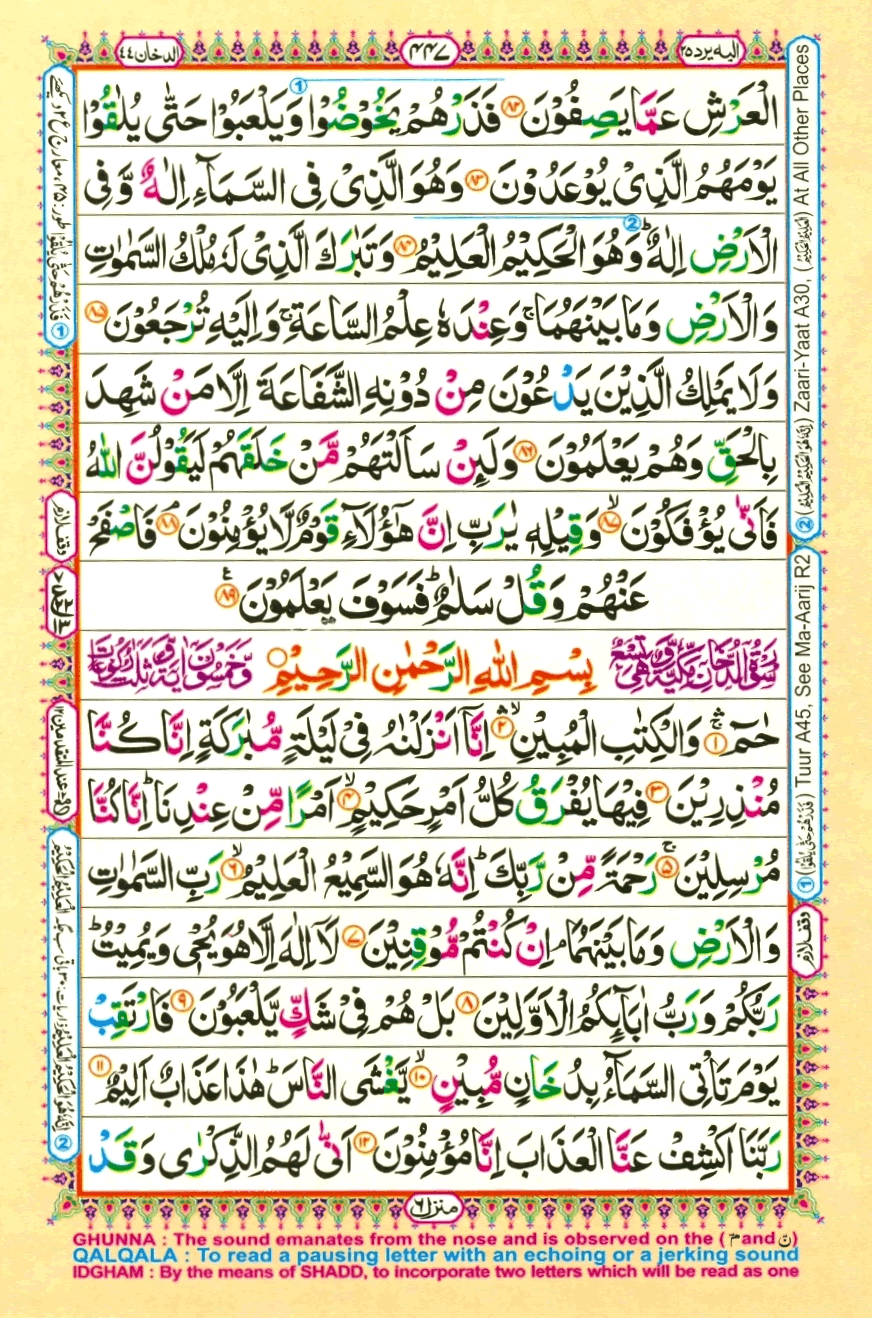 الدخان ٤٤
٤٤٧
الیه یرد ٢٥
الْعَرْشِ عَمَّا يَصِفُوْنَ ﴿۸۲﴾ فَذَرْهُمْ يَخُوْضُوْا وَيَلْعَبُوْا حَتّٰى يُلٰقُوْا
يَوْمَهُمُ الَّذِىْ يُوْعَدُوْنَ ﴿۸۳﴾ وَهُوَ الَّذِىْ فِى السَّمَآءِ اِلٰهٌ وَّفِى
الْاَرْضِ اِلٰهٌ ؕ وَهُوَ الْحَكِيْمُ الْعَلِيْمُ ﴿۸۴﴾ وَتَبٰرَكَ الَّذِىْ لَهٗ مُلْكُ السَّمٰوٰتِ
وَالْاَرْضِ وَمَا بَيْنَهُمَا ۚ وَعِنْدَهٗ عِلْمُ السَّاعَةِ ۚ وَاِلَيْهِ تُرْجَعُوْنَ ﴿۸۵﴾
وَلَا يَمْلِكُ الَّذِيْنَ يَدْعُوْنَ مِنْ دُوْنِهِ الشَّفَاعَةَ اِلَّا مَنْ شَهِدَ
بِالْحَقِّ وَهُمْ يَعْلَمُوْنَ ﴿۸۶﴾ وَلَئِنْ سَاَلْتَهُمْ مَّنْ خَلَقَهُمْ لَيَقُوْلُنَّ اللّٰهُ
فَاَنّٰى يُؤْفَكُوْنَ ﴿۸۷﴾ وَقِيْلِهٖ يٰرَبِّ اِنَّ هٰٓؤُلَآءِ قَوْمٌ لَّا يُؤْمِنُوْنَ ﴿۸۸﴾ فَاصْفَحْ
عَنْهُمْ وَقُلْ سَلٰمٌ ؕ فَسَوْفَ يَعْلَمُوْنَ ﴿۸۹﴾
سورة الدخان مكية وهى تسع بِسْمِ اللّٰهِ الرَّحْمٰنِ الرَّحِيْمِ وخمسون اية وثلث ركوعات
حٰمٓ ﴿۱﴾ وَالْكِتٰبِ الْمُبِيْنِ ﴿۲﴾ اِنَّاۤ اَنْزَلْنٰهُ فِىْ لَيْلَةٍ مُّبٰرَكَةٍ اِنَّا كُنَّا
مُنْذِرِيْنَ ﴿۳﴾ فِيْهَا يُفْرَقُ كُلُّ اَمْرٍ حَكِيْمٍ ﴿۴﴾ اَمْرًا مِّنْ عِنْدِنَا ؕ اِنَّا كُنَّا
مُرْسِلِيْنَ ﴿۵﴾ رَحْمَةً مِّنْ رَّبِّكَ ؕ اِنَّهٗ هُوَ السَّمِيْعُ الْعَلِيْمُ ﴿۶﴾ رَبِّ السَّمٰوٰتِ
وَالْاَرْضِ وَمَا بَيْنَهُمَا ۘ اِنْ كُنْتُمْ مُّوْقِنِيْنَ ﴿۷﴾ لَاۤ اِلٰهَ اِلَّا هُوَ يُحْىٖ وَيُمِيْتُ ؕ
رَبُّكُمْ وَرَبُّ اٰبَآئِكُمُ الْاَوَّلِيْنَ ﴿۸﴾ بَلْ هُمْ فِىْ شَكٍّ يَّلْعَبُوْنَ ﴿۹﴾ فَارْتَقِبْ
يَوْمَ تَاْتِى السَّمَآءُ بِدُخَانٍ مُّبِيْنٍ ﴿۱۰﴾ يَّغْشَى النَّاسَ ؕ هٰذَا عَذَابٌ اَلِيْمٌ ﴿۱۱﴾
رَبَّنَا اكْشِفْ عَنَّا الْعَذَابَ اِنَّا مُؤْمِنُوْنَ ﴿۱۲﴾ اَنّٰى لَهُمُ الذِّكْرٰى وَقَدْ
منزل ٦
① Tuur A45, See Ma-Aarij R2
② Zaari-Yaat A30, At All Other Places
وقف لازم
وقف لازم
GHUNNA : The sound emanates from the nose and is observed on the ( مّ and نّ )
QALQALA : To read a pausing letter with an echoing or a jerking sound
IDGHAM : By the means of SHADD, to incorporate two letters which will be read as one